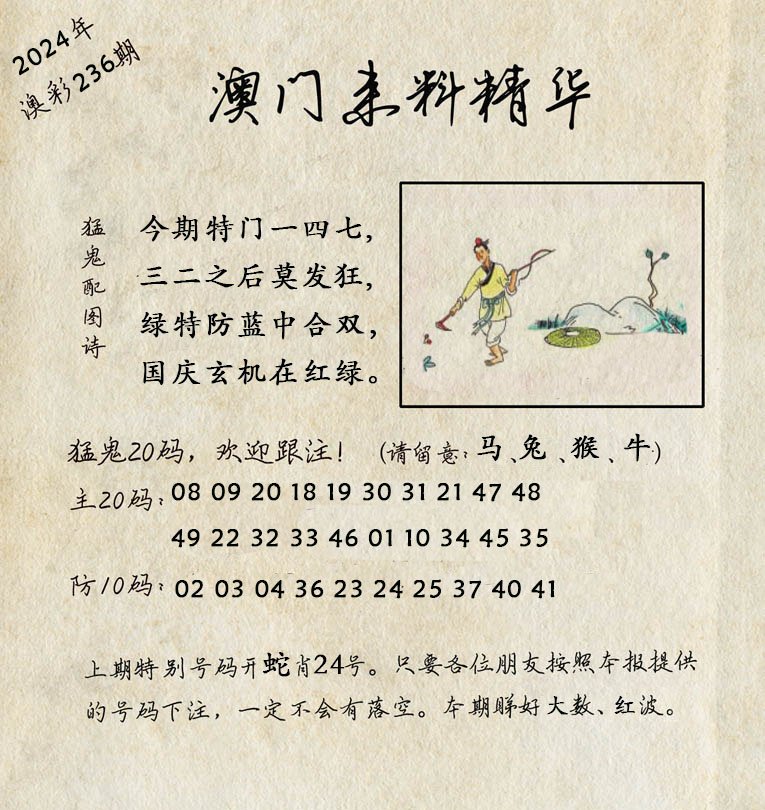 2024年
澳彩236期
澳门来料精华
猛鬼配图诗
今期特门一四七，
三二之后莫发狂，
绿特防蓝中合双，
国庆玄机在红绿。
猛鬼20码，欢迎跟注！（请留意：马、兔、猴、牛）
主20码：08 09 20 18 19 30 31 21 47 48
49 22 32 33 46 01 10 34 45 35
防10码：02 03 04 36 23 24 25 37 40 41
上期特别号码开蛇肖24号。只要各位朋友按照本报提供
的号码下注，一定不会有落空。本期睇好大数、红波。